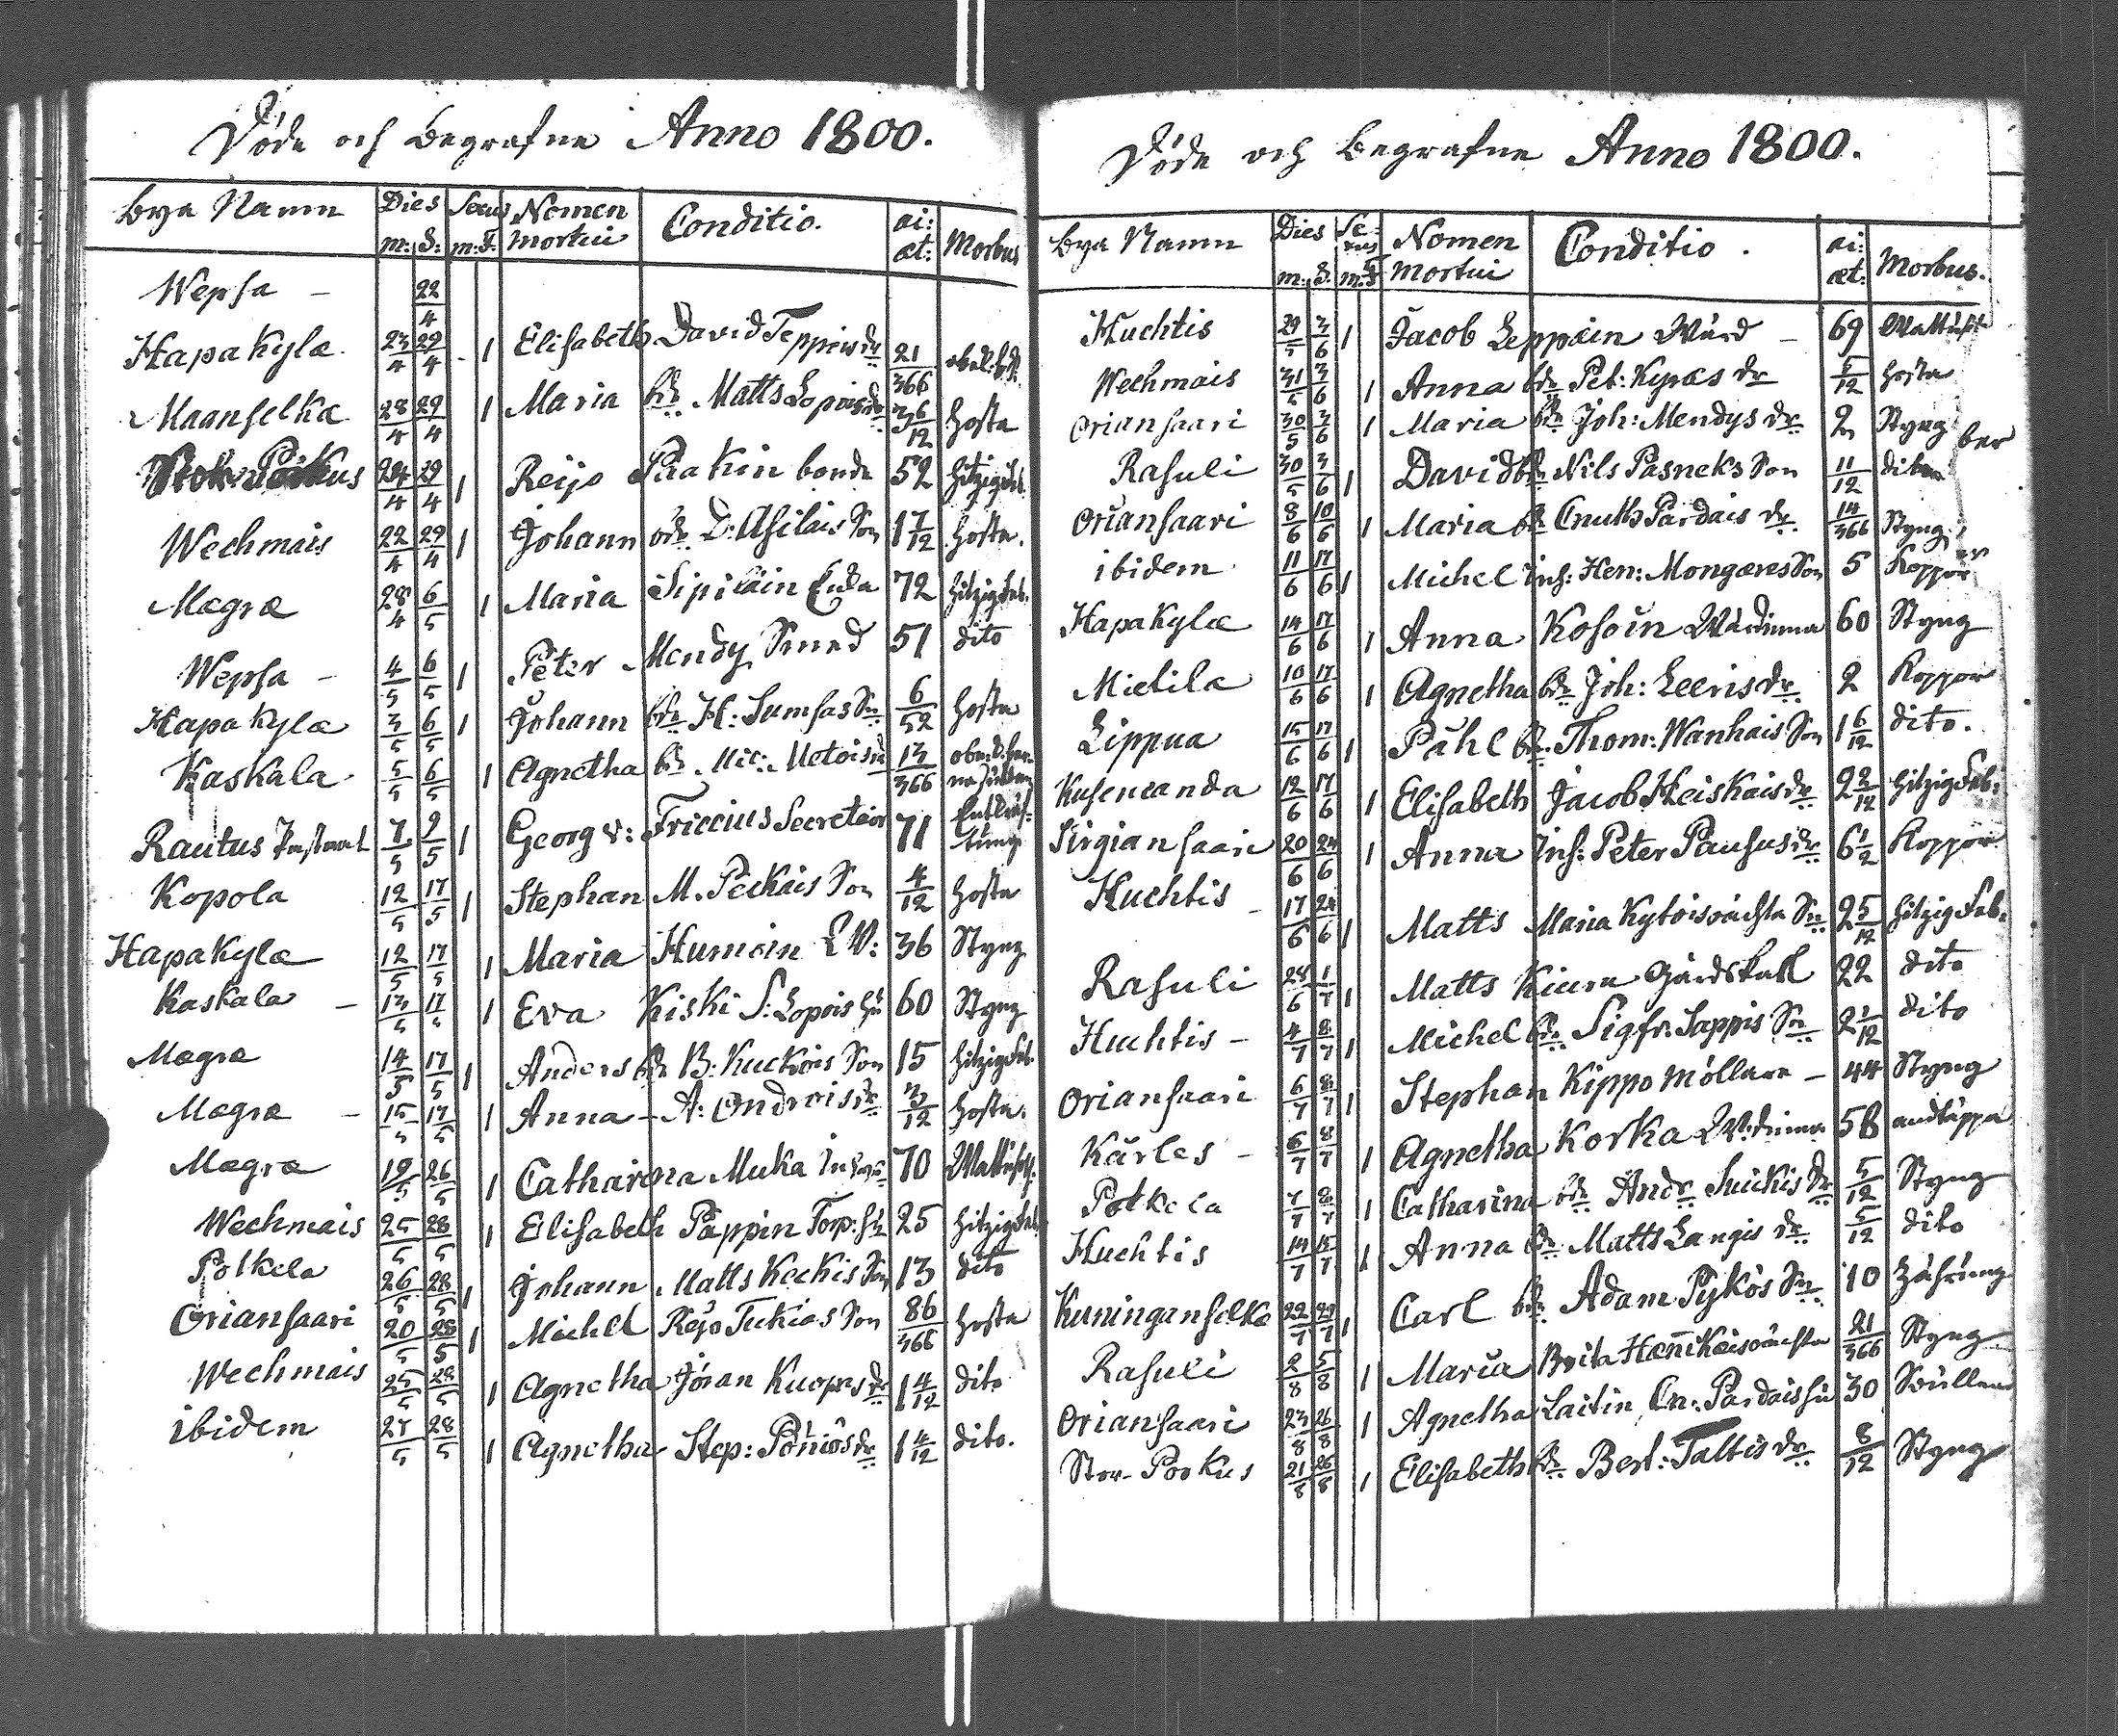 Döde och Begrafne Anno 1800.
Bya Namn Dies Sexus Nomen Conditio. ai: Morbus
m: d: m: F. mortui æt:
Wepsa – 22/4
Hapakylæ 23/4 29/4 1 Elisabeth David Teppois dr 21/366
Maanselkæ 28/4 29/4 1 Maria bdr Matts Lopois dr 3 6/12 hosta
Pôrkus 24/4 29/4 1 Reijo Paakin bonde 52 hitzig feb.
Wechmais 22/4 29/4 1 Johann bdr D: Asilais Son 1 7/12 hosta.
Mægræ 28/4 6/5 1 Maria Sipilain Enka 72 hitzig feb.
Wepsa – 4/5 6/5 1 Peter Mendy Smed 51 dito
Hapakylæ 3/5 6/5 1 Johann bdr H: Sumsas Sn 6/52 hosta
Kaskala 5/5 6/5 1 Agnetha bdr Mic: Metois dr 13/366
Rautus Pastorat 7/5 9/5 1 Georg v: Friccius Secretair 71
Kopola 12/5 17/5 1 Stephan M. Peckais Son 4/12 hosta
Hapakylæ 12/5 17/5 1 Maria Humoin E W: 36 Styng
Kaskala – 13/5 17/5 1 Eva Kiski S: Lopois hu 60 Styng
Mægræ 14/5 17/5 1 Anders bdr B: Kuckois Son 15 hitzig feb.
Mægræ – 15/5 17/5 1 Anna – A: Ondrois dr 3/12 hosta.
Mægræ 19/5 26/5 1 Catharina Muka 70
Wechmais 25/5 28/5 1 Elisabeth Pappin Torp: hu 25 hitzig feb.
Polkela 26/5 28/5 1 Johann Matts Keckis Son 13 dito
Oriansaari 20/5 28/5 1 Michel Reijo Tukias Son 86/366 hosta
Wechmais 25/5 28/5 1 Agnetha Jöran Kuopas dr 1 4/12 dito
ibidem 27/5 28/5 1 Agnetha Step: Pôniôs dr 1 4/12 dito.
Döde och Begrafne Anno 1800.
Bya Namn Dies Sexus Nomen Conditio. ai: Morbus.
m: d. m: F mortui æt:
Huchtis 29/5 3/6 1 Jacob Leppäin Wärd – 69 Wattusot
Wechmais 31/5 3/6 1 Anna bdr Pet: Kyræs dr 5/12 hosta
Oriansaari 30/5 3/6 1 Maria bdr Joh: Mendys dr 2 Styng
Rasuli 30/5 3/6 1 David bdr Nils Pasneks Son 11/12 dito
Oriansaari 8/6 10/6 1 Maria bdr Cnuth Pardais dr 14/366 Styng
ibidem 11/6 17/6 1 Michel Inh: Hen: Mongæres Son 5 Koppor
Hapakylæ 14/6 17/6 1 Anna Kosoin Wärdinna 60 Styng
Mietilæ 10/6 17/6 1 Agnetha bdr Joh: Leeris dr 2 Koppor
Lippua 15/6 17/6 1 Påhl bdr Thom: Wanhais Son 1 6/12 dito.
Kuseneanda 12/6 17/6 1 Elisabeth Jacob Heiskais dr 2 2/12 hitzig Feb:
Sirgiansaari 20/6 24/6 1 Anna Inh: Peter Pausus dr 6 1/2 Koppor
Huchtis – 17/6 24/6 1 Matts Maria Kytois oächta Sn 2 5/12 hitzig Feb.
Rasuli 28/6 1/7 1 Matts Kiuru Gårdskarl 22 dito
Huchtis – 4/7 8/7 1 Michel bdr Sigfr: Sappis Sn 2 1/12 dito
Oriansaari 6/7 8/7 1 Stephan Kippo Möllare – 44 Styng
Kärles – 6/7 8/7 1 Agnetha Korka Wärdinna 58 andtäppa
Polkela 7/7 8/7 1 Catharina bdr Andr Suickis dr 5/12 Styng
Huchtis 14/7 15/7 1 Anna bdr Matts Langis dr 5/12 dito
Kuninganselkæ 22/7 29/7 1 Carl bdr Adam Pykös Sn 10
Rasuli 2/8 5/8 1 Maria Brita Hænikäis oächta 21/366 Styng
Oriansaari 23/8 26/8 1 Agnetha Laitin Cn: Pardais hu 30
Stor-Porkus 21/8 26/8 1 Elisabeth bdr Bert: Taltis dr 8/12 Styng